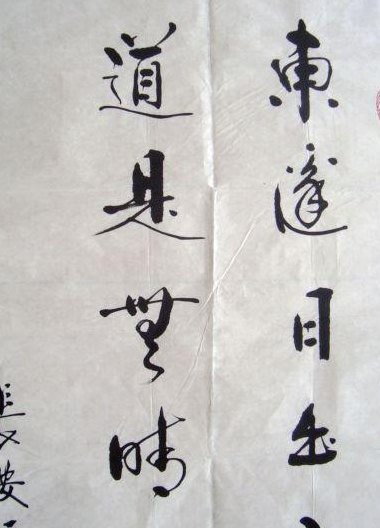 東邊日出
道是無晴